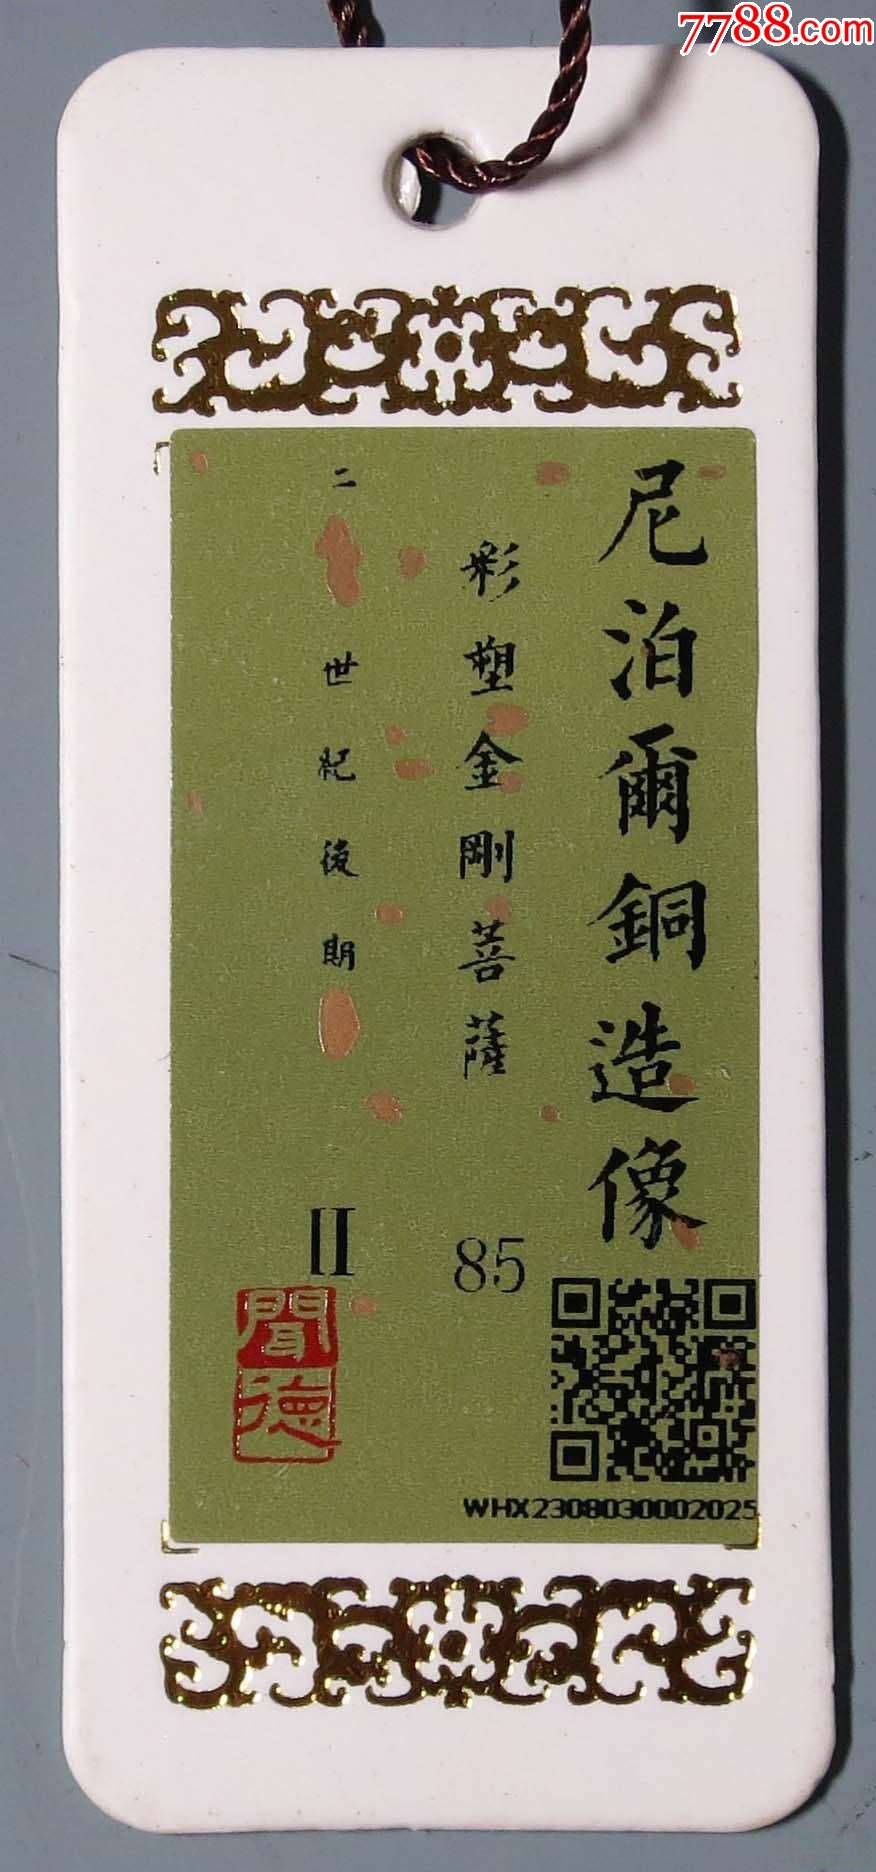 7788.com
尼泊爾銅造像
彩塑金剛菩薩
二 世紀後期
85
II
聞德
WHX2308030002025